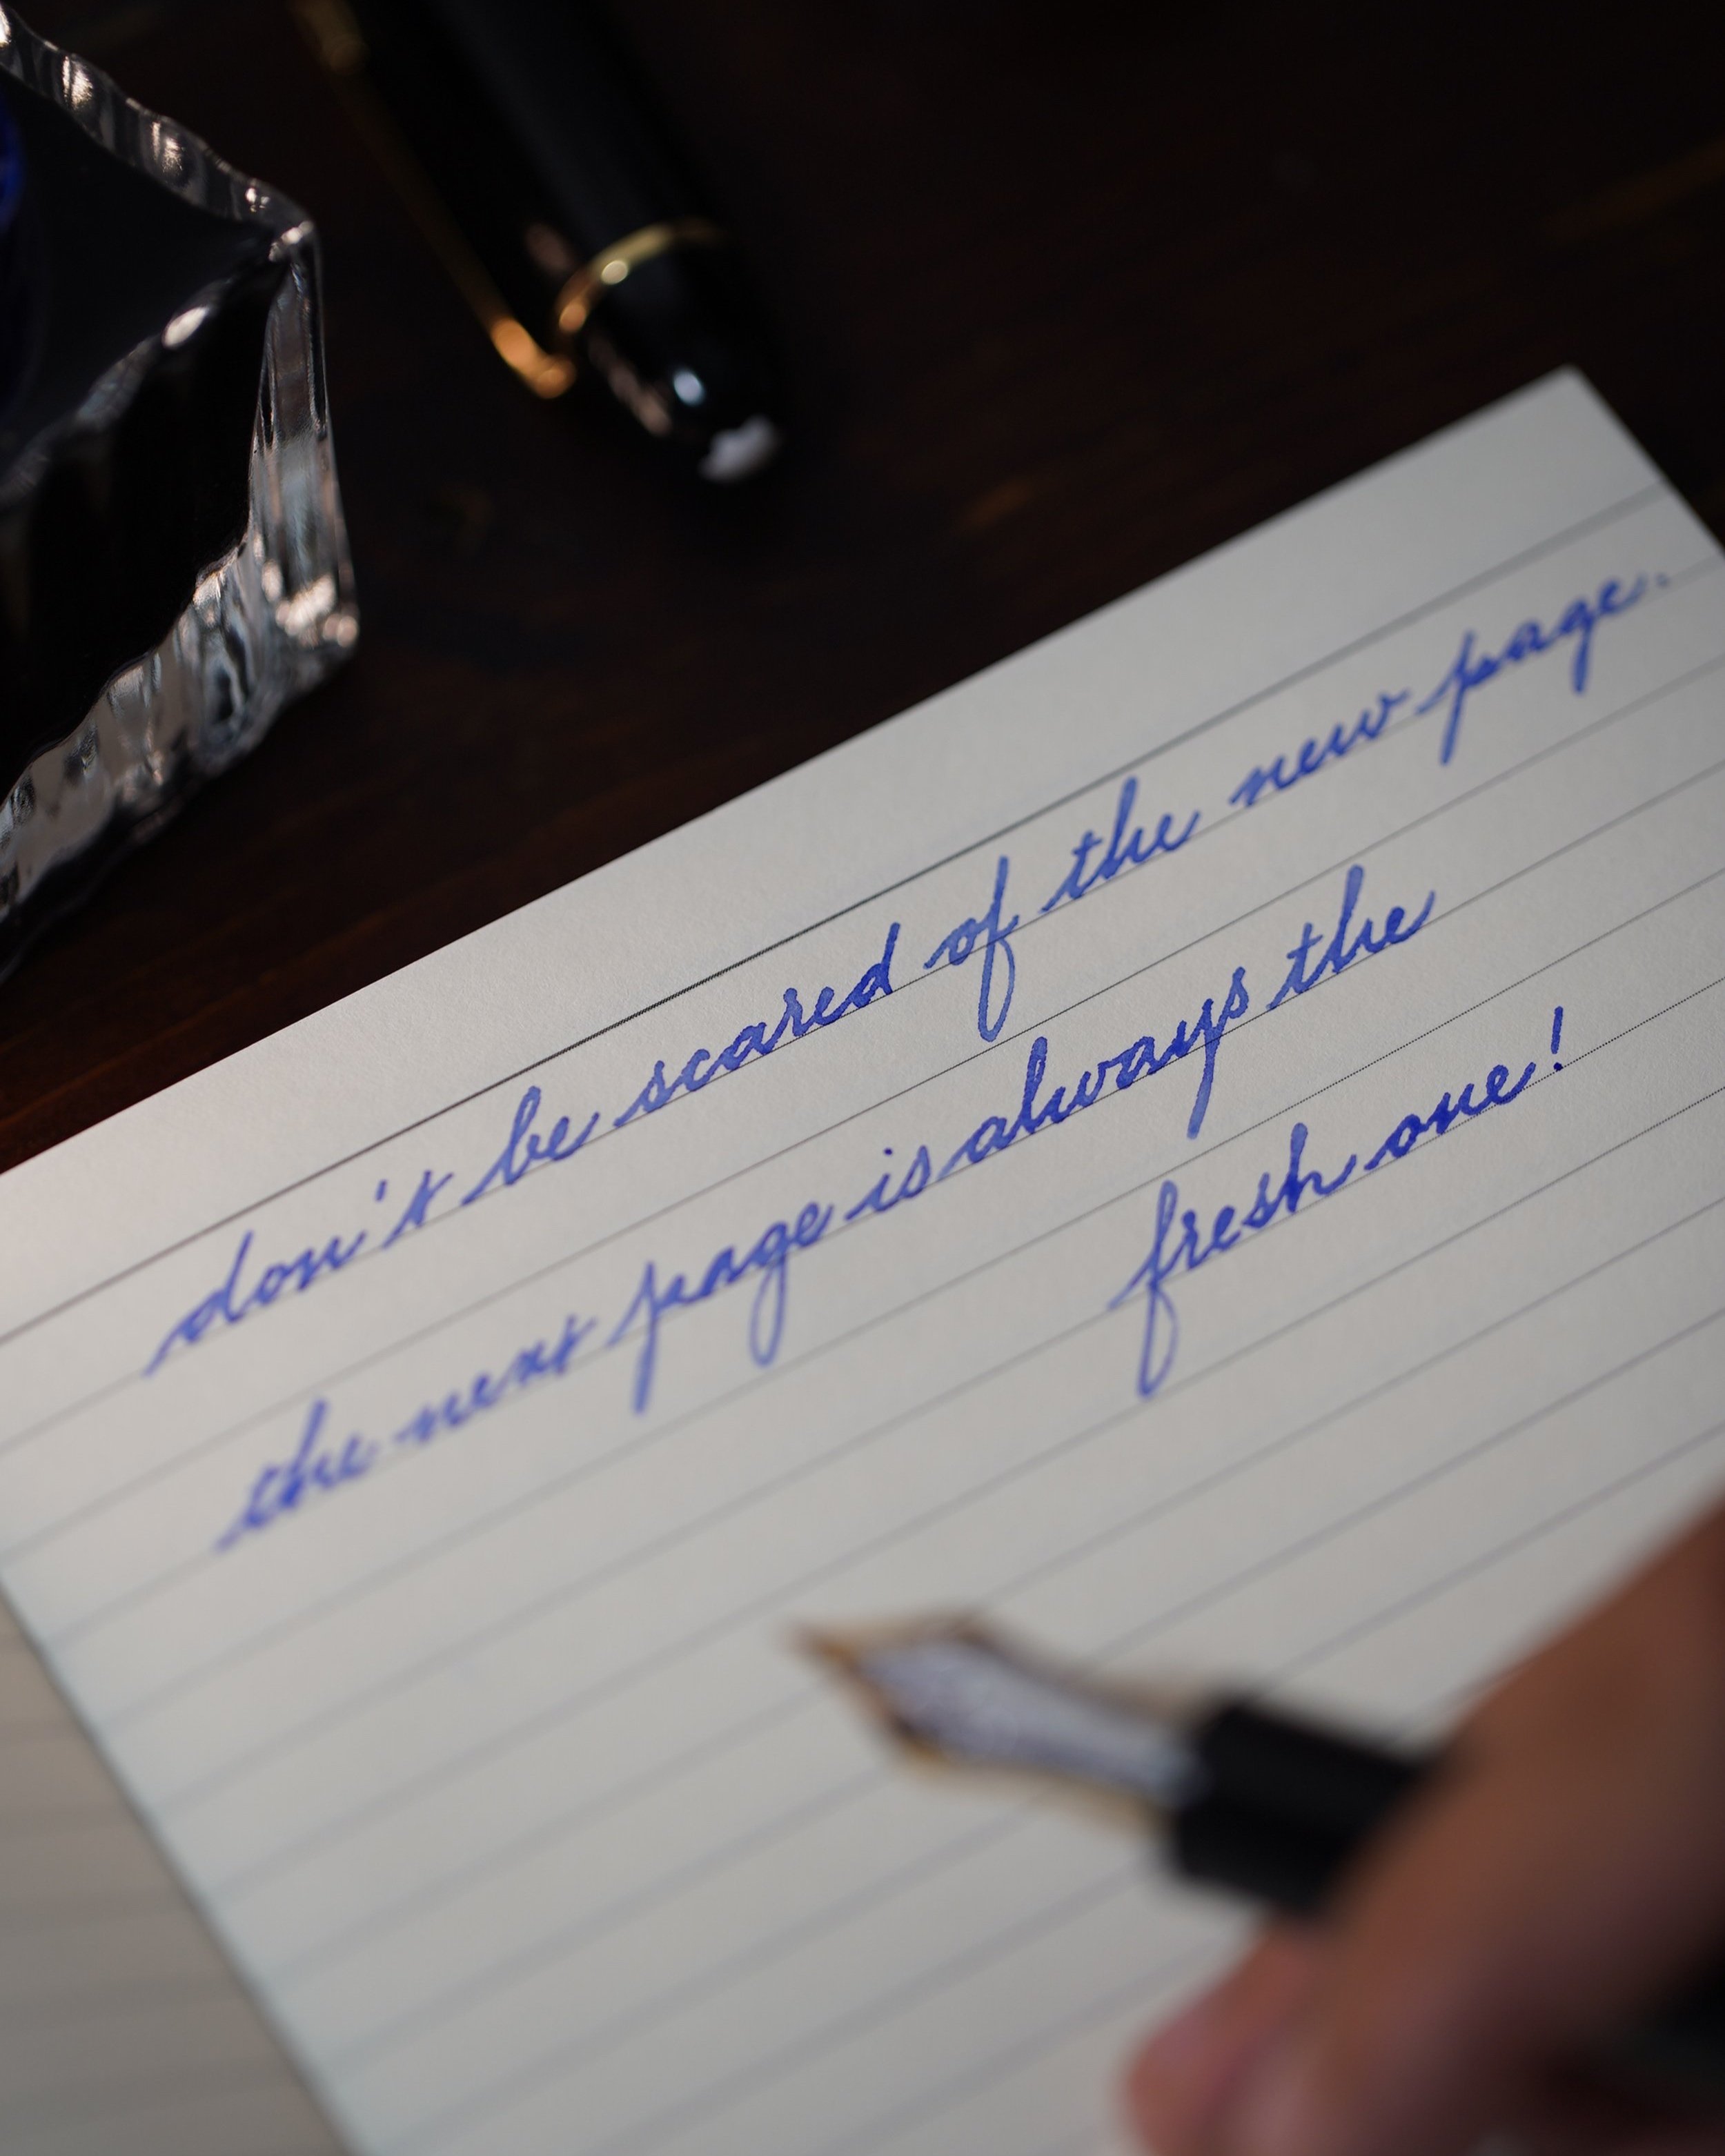 don't be scared of the new page.
the next page is always the
fresh one!